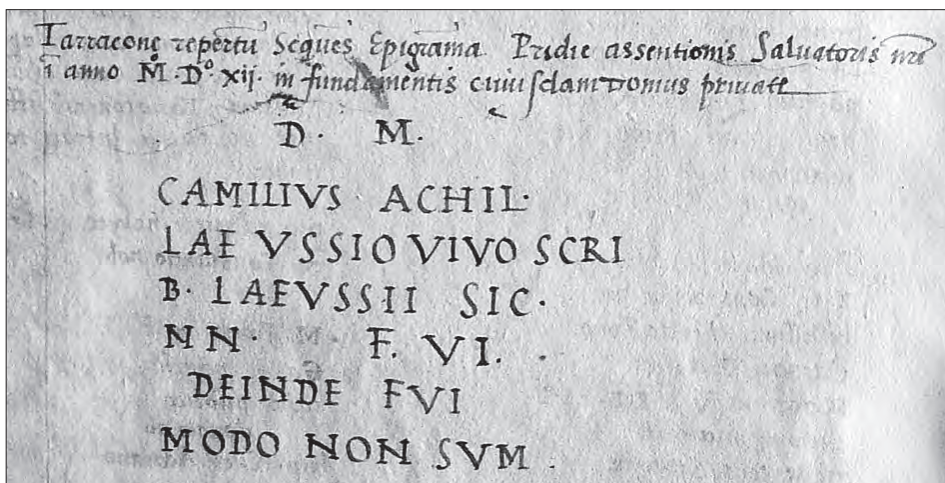 Tarracone repertū Seques Epigrāma. Pridie assentionis Saluatoris nr̄i
ī anno M.Dº.xij. in fundamentis cuiusdam domus priuate
D. M.
CAMILIVS ACHIL.
LAE VSSIO VIVO SCRI
B. LAEVSSII SIC.
NN. F. VI. .
DEINDE FVI
MODO NON SVM .